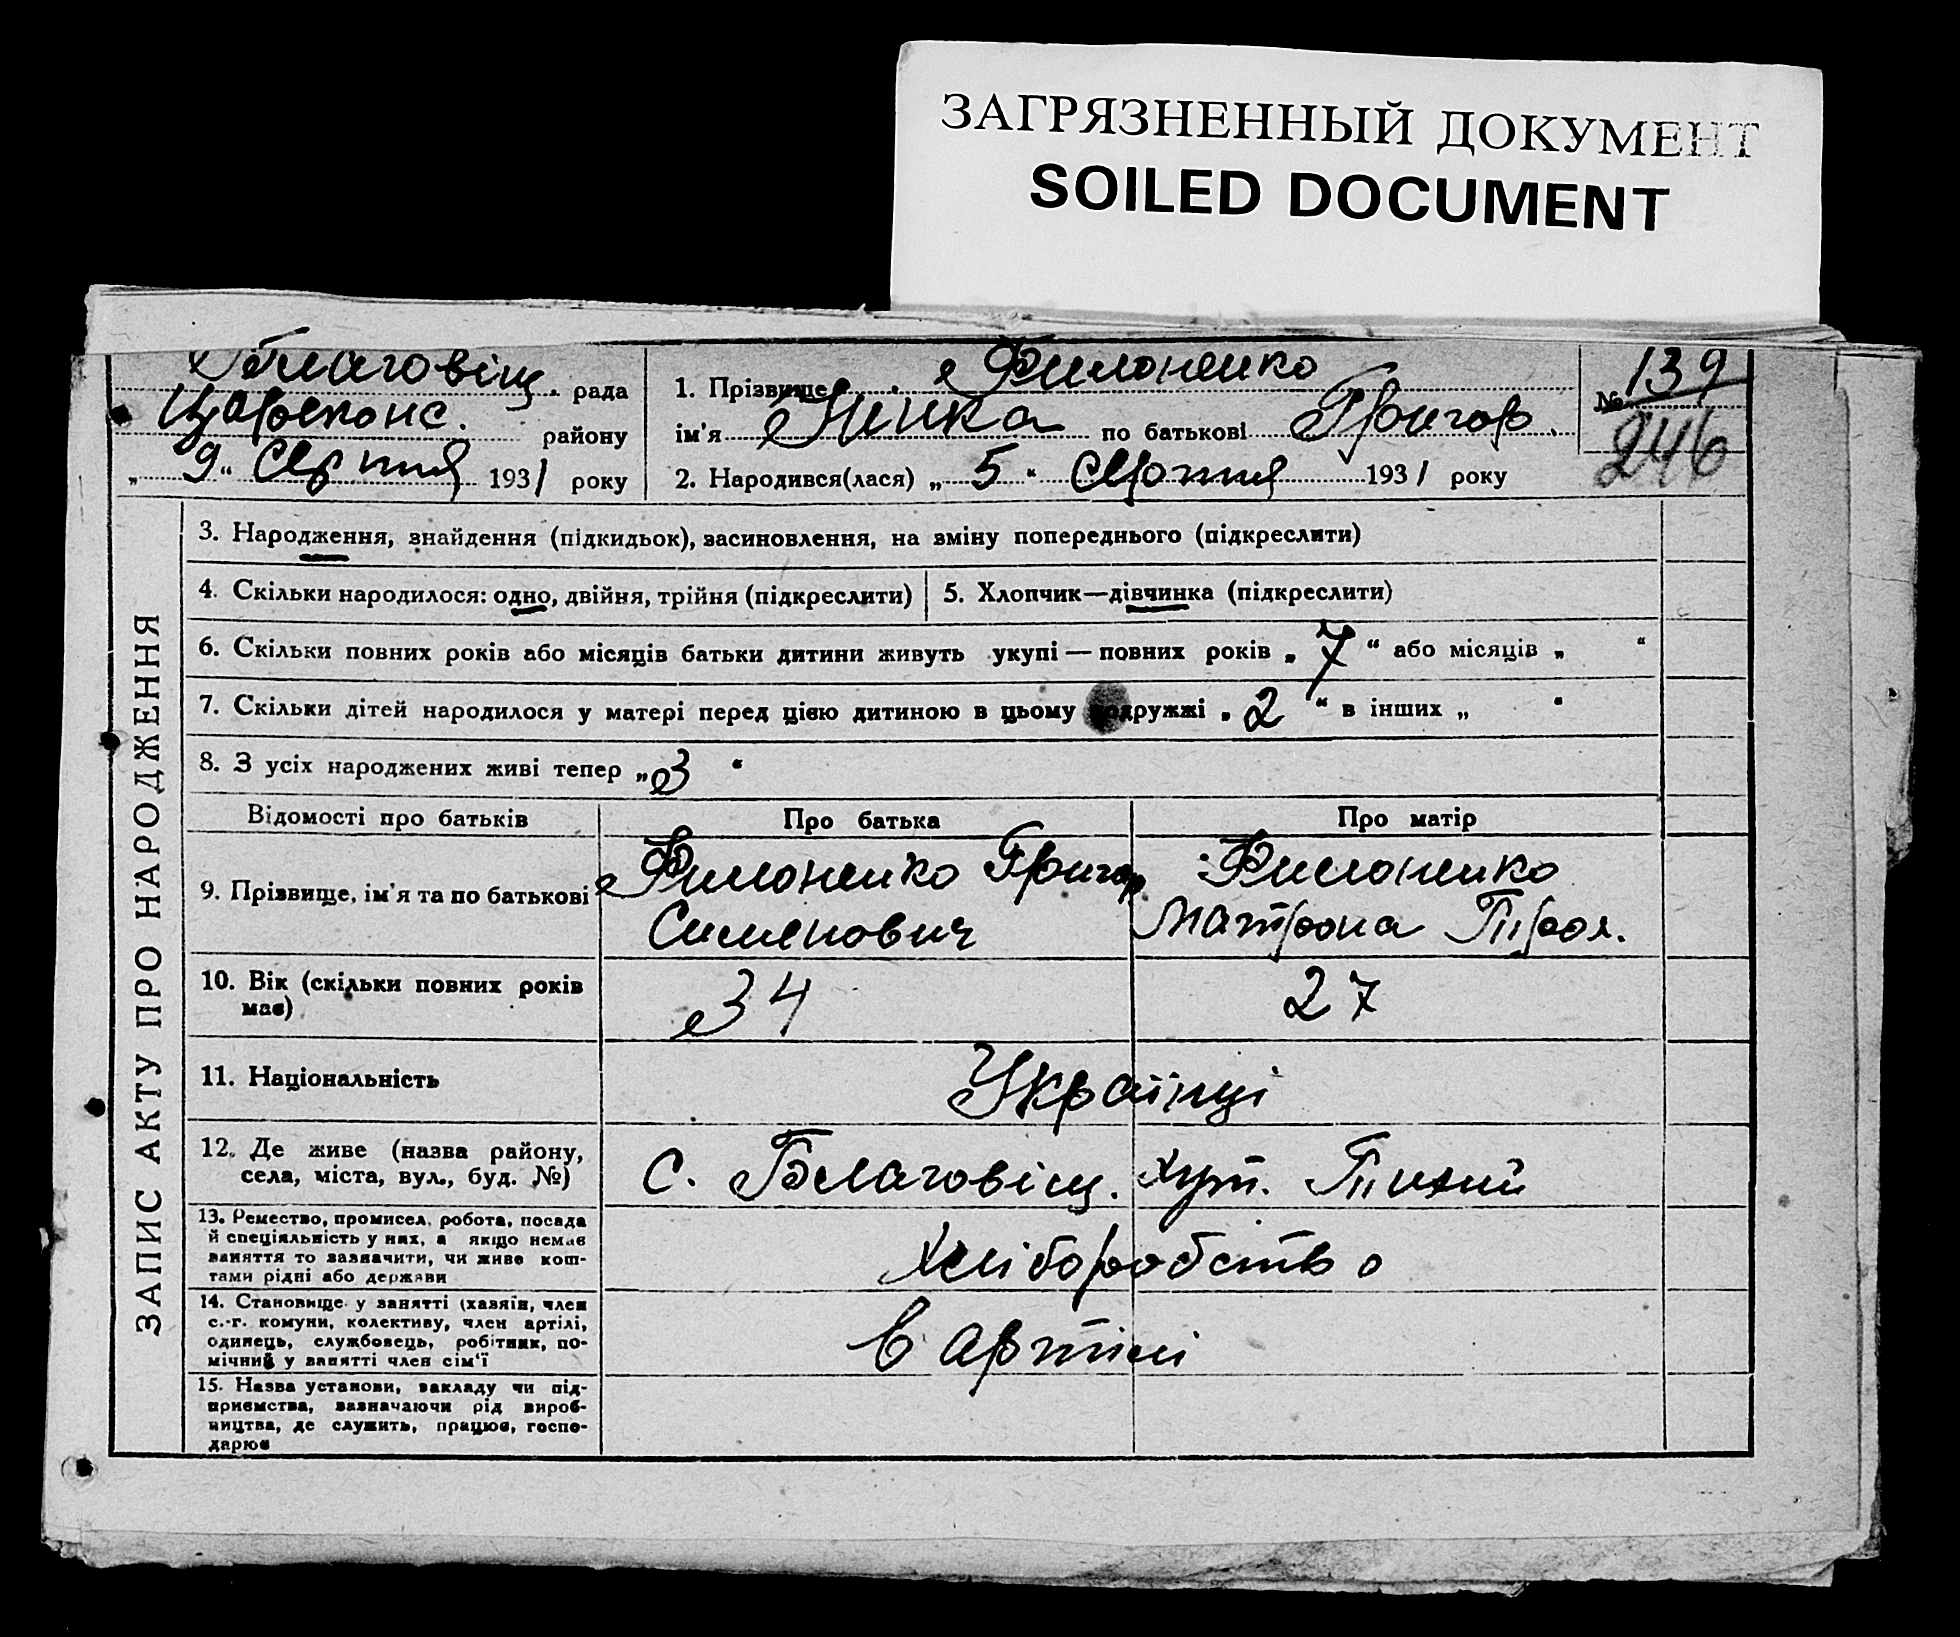 ЗАГРЯЗНЕННЫЙ ДОКУМЕНТ
SOILED DOCUMENT
Благовіщ. рада
Цареконс. району
„ 9 “ Серпня 1931 року
1. Прізвище Филоненко
ім'я Нинка по батькові Григор.
2. Народився(лася) „ 5 “ Серпня 1931 року
№ 139
246
ЗАПИС АКТУ ПРО НАРОДЖЕННЯ
3. Народження, знайдення (підкидьок), засиновлення, на зміну попереднього (підкреслити)
4. Скільки народилося: одно, двійня, трійня (підкреслити)
5. Хлопчик—дівчинка (підкреслити)
6. Скільки повних років або місяців батьки дитини живуть укупі — повних років „ 7 “ або місяців „ “
7. Скільки дітей народилося у матері перед цією дитиною в цьому подружжі „ 2 “ в інших „ “
8. З усіх народжених живі тепер „ 3 “
Відомості про батьків
Про батька
Про матір
9. Прізвище, ім'я та по батькові
Филоненко Григор
Семенович
Филоненко
Матрона
10. Вік (скільки повних років
має)
34
27
11. Національність
Українці
12. Де живе (назва району,
села, міста, вул., буд. №)
с. Благовіщ. хут. Тихий
13. Ремество, промисел, робота, посада
й спеціяльність у них, а якщо немає
заняття то зазначити, чи живе кош-
тами рідні або держави
Хліборобство
14. Становище у занятті (хазяїн, член
с.-г. комуни, колективу, член артілі,
одинець, службовець, робітник, по-
мічний у занятті член сім'ї
в артілі
15. Назва установи, закладу чи під-
приємства, зазначаючи рід вироб-
ництва, де служить, працює, госпо-
дарює